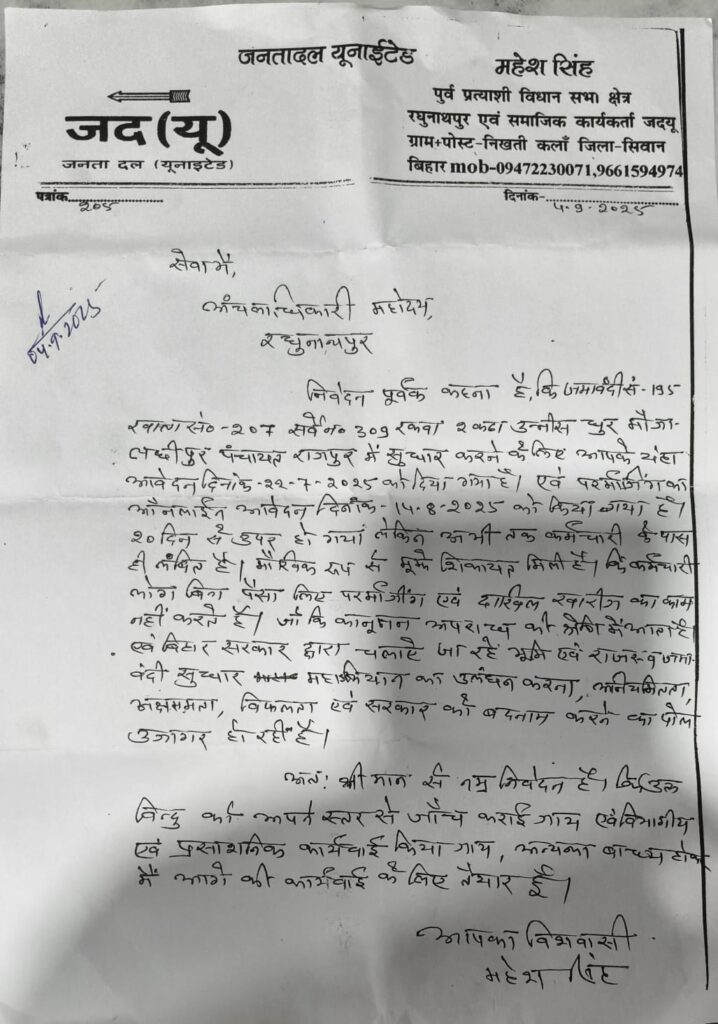 जनतादल यूनाईटेड
जद (यू)
जनता दल (यूनाइटेड)
महेश सिंह
पुर्व प्रत्याशी विधान सभा क्षेत्र
रघुनाथपुर एवं समाजिक कार्यकर्ता जदयू
ग्राम+पोस्ट-निखती कलाँ जिला-सिवान
बिहार mob-09472230071,9661594974
पत्रांक 205
दिनांक- 4-9-2025
सेवा में,
04.9.2025
अंचलाधिकारी महोदय,
रघुनाथपुर
निवेदन पूर्वक कहना है, कि जमाबंदी सं-195
खाता सं०-207 सर्वे न० 309 रकवा 2 कठा उन्नीस धुर मौजा-
पंचायत राजपुर में सुधार करने के लिए आपके यंहा
आवेदन दिनांक-22-7-2025 को दिया गया है। एवं परर्माजींग का
औनलाईन आवेदन दिनांक-14-8-2025 को किया गया है।
20 दिन से उपर हो गया लेकिन अभी तक कर्मचारी के पास
ही लंबित है। मौखिक रूप से मुझे शिकायत मिली है। कि कर्मचारी
लोग बिना पैसा लिए परर्माजींग एवं दाखिल खारीज का काम
नहीं करते है। जो कि कानूनन अपराध की श्रेणि में आता है
एवं बिहार सरकार द्वारा चलाऐ जा रहे भूमि एवं राजस्व जमा-
बंदी सुधार महाअभियान का उलंघन करना, अनीयमितता,
अक्षमता, विफलता एवं सरकार को बदनाम करने का पोल
उजागर हो रही है।
अतः श्री मान से नम्र निवेदन है। कि उक्त
बिन्दु को अपने स्तर से जाँच कराई जाय एवं विभागीय
एवं प्रसाशनिक कार्यवाई किया जाय, अन्यथा बाध्य होकर
मैं आगे की कार्यवाई के लिए तैयार हूँ।
आपका विश्वासी
महेश सिंह